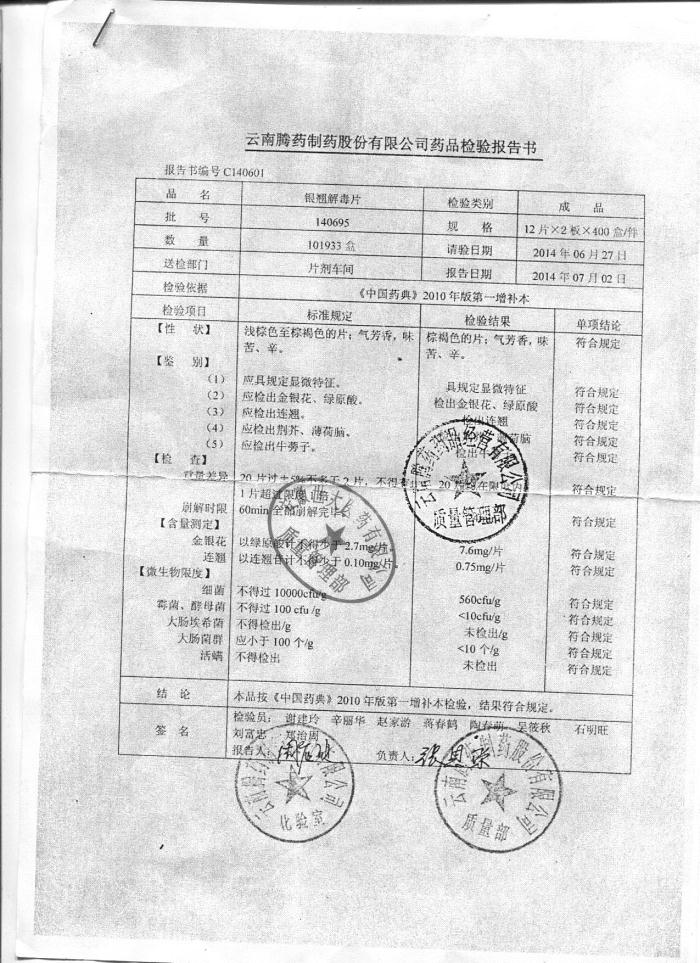 云南腾药制药股份有限公司药品检验报告书
报告书编号 C140601
品 名 银翘解毒片 检验类别 成 品
批 号 140695 规 格 12 片×2 板×400 盒/件
数 量 101933 盒 请验日期 2014 年 06 月 27 日
送检部门 片剂车间 报告日期 2014 年 07 月 02 日
检验依据 《中国药典》2010 年版第一增补本
检验项目 标准规定 检验结果 单项结论
【性 状】 浅棕色至棕褐色的片；气芳香，味 棕褐色的片；气芳香，味 符合规定
苦、辛。 苦、辛。
【鉴 别】
（1） 应具规定显微特征。 具规定显微特征 符合规定
（2） 应检出金银花、绿原酸。 检出金银花、绿原酸 符合规定
（3） 应检出连翘。 检出连翘 符合规定
（4） 应检出荆芥、薄荷脑。 荷脑 符合规定
（5） 应检出牛蒡子。 检出牛 符合规定
【检 查】
重量差异 20 片过±5%不多于 2 片，不得有 20 片
1 片超过限度 1
崩解时限 60min 全部崩解完毕 符合规定
【含量测定】
金银花 以绿原酸计不得少于 2.7mg/片 7.6mg/片 符合规定
连翘 以连翘苷计不得少于 0.10mg/片 0.75mg/片 符合规定
【微生物限度】
细菌 不得过 10000cfu/g 560cfu/g 符合规定
霉菌、酵母菌 不得过 100 cfu /g <10cfu/g 符合规定
大肠埃希菌 不得检出/g 未检出/g 符合规定
大肠菌群 应小于 100 个/g <10 个/g 符合规定
活螨 不得检出 未检出 符合规定
结 论 本品按《中国药典》2010 年版第一增补本检验，结果符合规定。
签 名 检验员： 谢建玲 辛丽华 赵家游 蒋春鹤 陶春萌 吴筱秋 石明旺
刘富忠 郑治周
报告人： 负责人：
云南腾药药品经营有限公司
质量管理部
药有限公司
质量管理部
化验室
制药股份有限公司
质量部